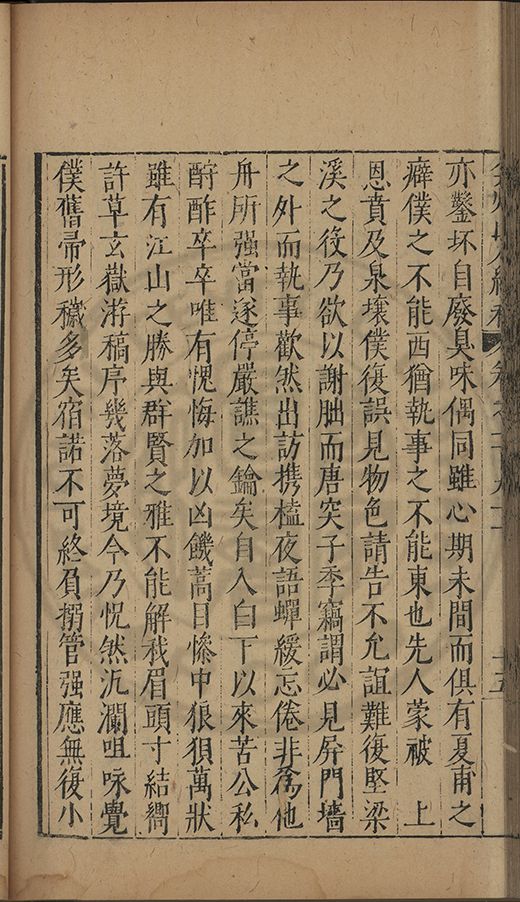 亦鑿坏自廢臭味偶同雖心期未間而俱有夏甫之
癖僕之不能西猶執事之不能東也先人蒙被　上
恩賁及泉壤僕復誤見物色請告不允誼難復堅梁
溪之役乃欲以謝朏而唐突子季竊謂必見屏門墻
之外而執事歡然出訪携榼夜語蟬緩忘倦非為他
舟所强當遂停嚴譙之鑰矣自入白下以來苦公私
酧酢卒卒唯有愧悔加以凶饑蒿目慘中狼狽萬狀
雖有江山之勝與群賢之雅不能解我眉頭寸結嚮
許草玄嶽游稿序幾落夢境今乃怳然沉瀾咀咏覺
僕舊帚形穢多矣宿諾不可終負搦管强應無復小